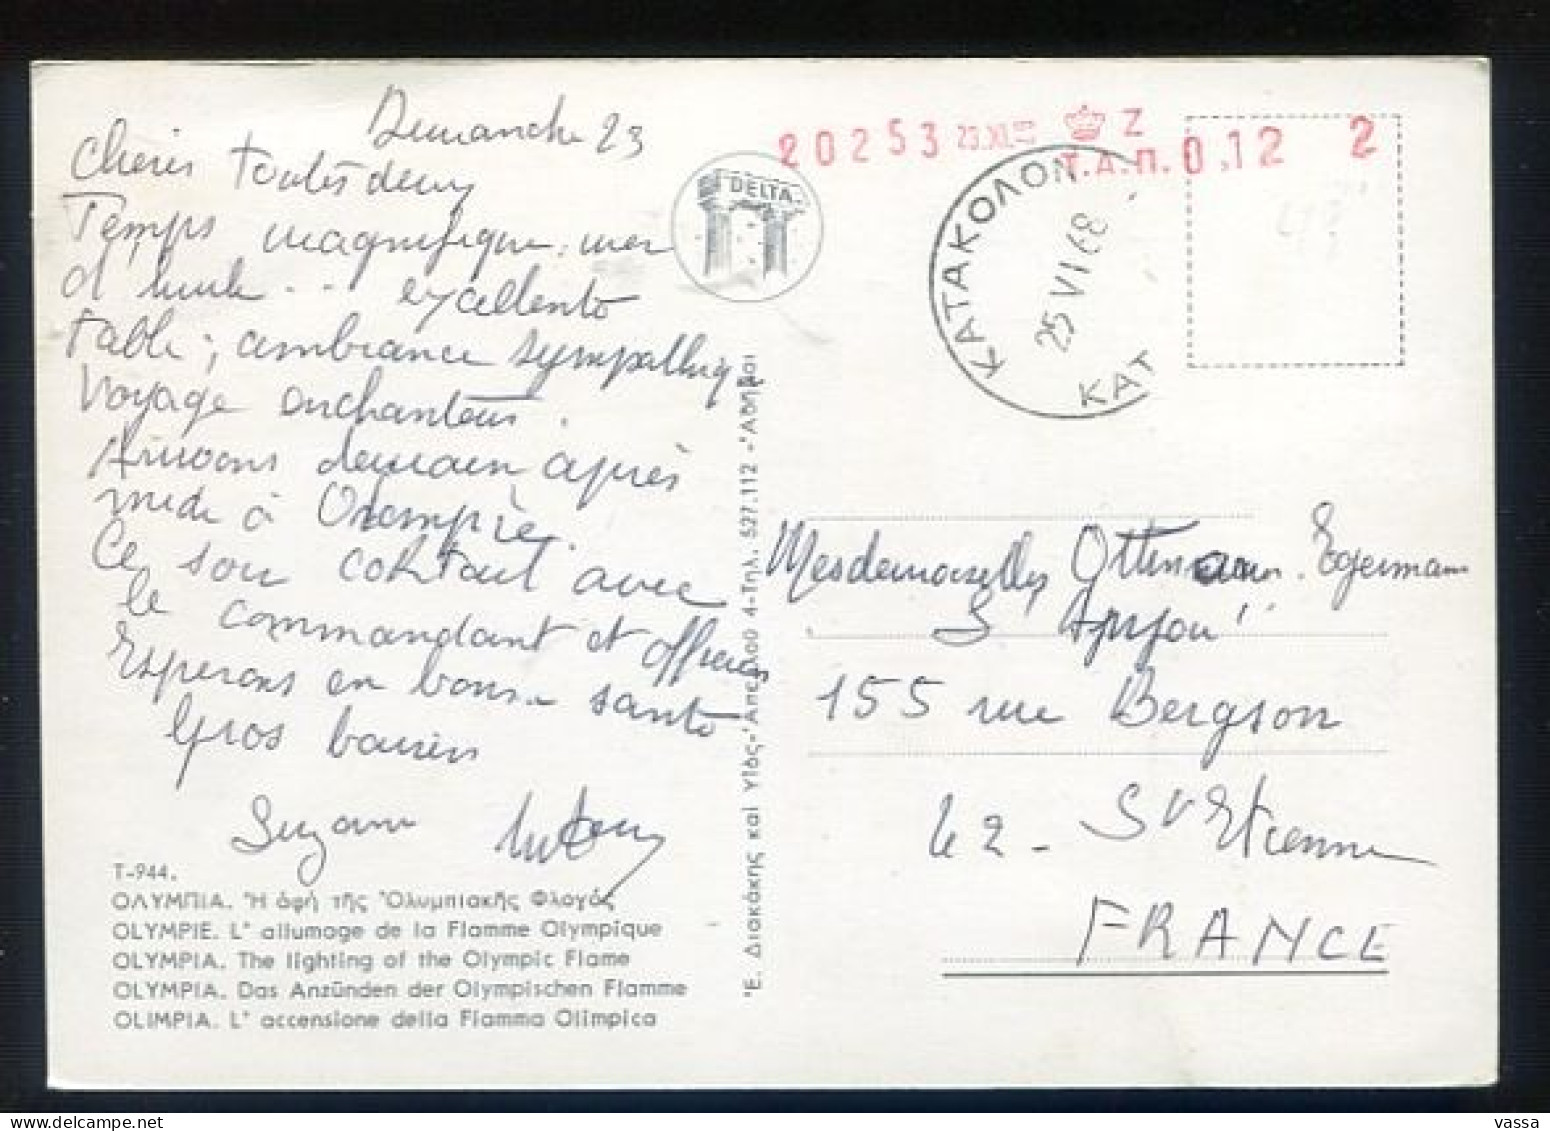 Dimanche 23
Cheries toutes deux
Temps magnifique, mer
d'huile . . excellente
table ; ambiance sympathique
Voyage enchanteur.
Arrivons demain après
midi à Olempie.
Ce soir cocktail avec
le commandant et officiers
Esperons en bonne santé
Gros baisers
Suzanne
T-944.
ΟΛΥΜΠΙΑ. Ἡ ἁφὴ τῆς Ὀλυμπιακῆς Φλογός
OLYMPIE. L' allumage de la Flamme Olympique
OLYMPIA. The lighting of the Olympic Flame
OLYMPIA. Das Anzünden der Olympischen Flamme
OLIMPIA. L' accensione della Fiamma Olimpica
DELTA
Ἐ. Διακάκης καὶ Υἱός-Ἀπέλλοῦ 4-Τηλ. 527.112 -Ἀθῆναι
20253 23.XI. Z
Τ.Α.Π. 0,12 2
ΚΑΤΑΚΟΛΟΝ
25 VI 68
ΚΑΤ
Mesdemoiselles Egermann
155 rue Bergson
42 - St Etienne
FRANCE
vassa